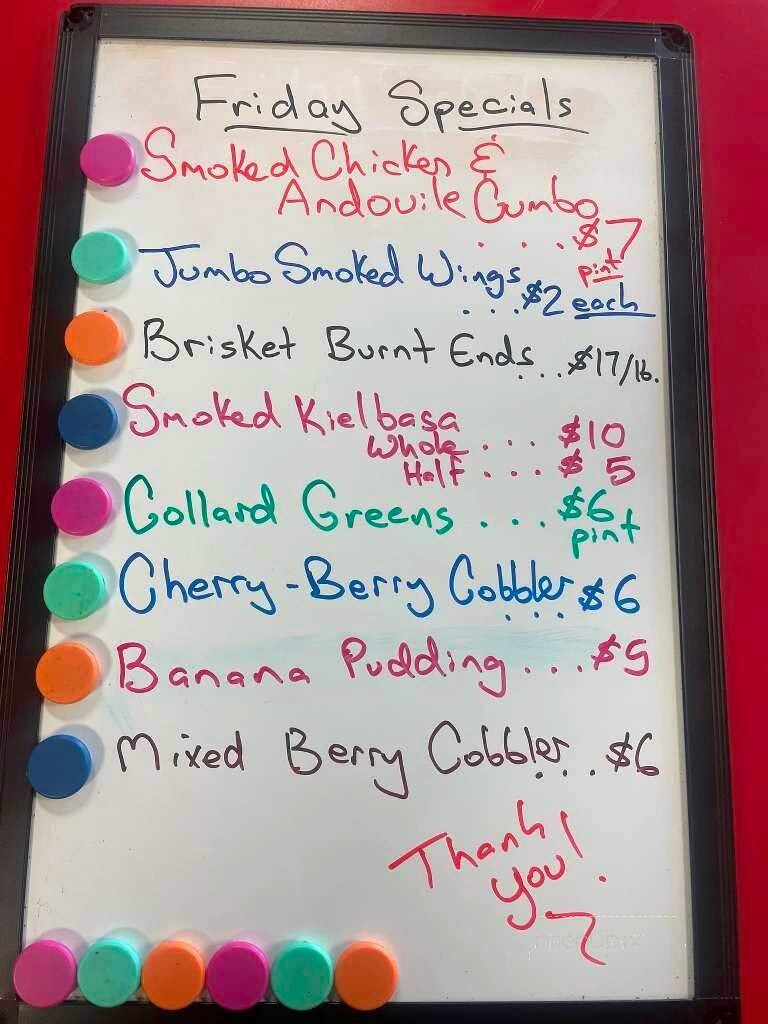 Friday Specials
Smoked Chicken &
Andouile Gumbo
. . . . $7
pint
Jumbo Smoked Wings
. . . $2 each
Brisket Burnt Ends . . . $17/lb.
Smoked Kielbasa
Whole . . . $10
Half . . . $5
Collard Greens . . . $6
pint
Cherry-Berry Cobbler . . . . $6
Banana Pudding . . . $5
Mixed Berry Cobbler . . . $6
Thank
you!
menupix